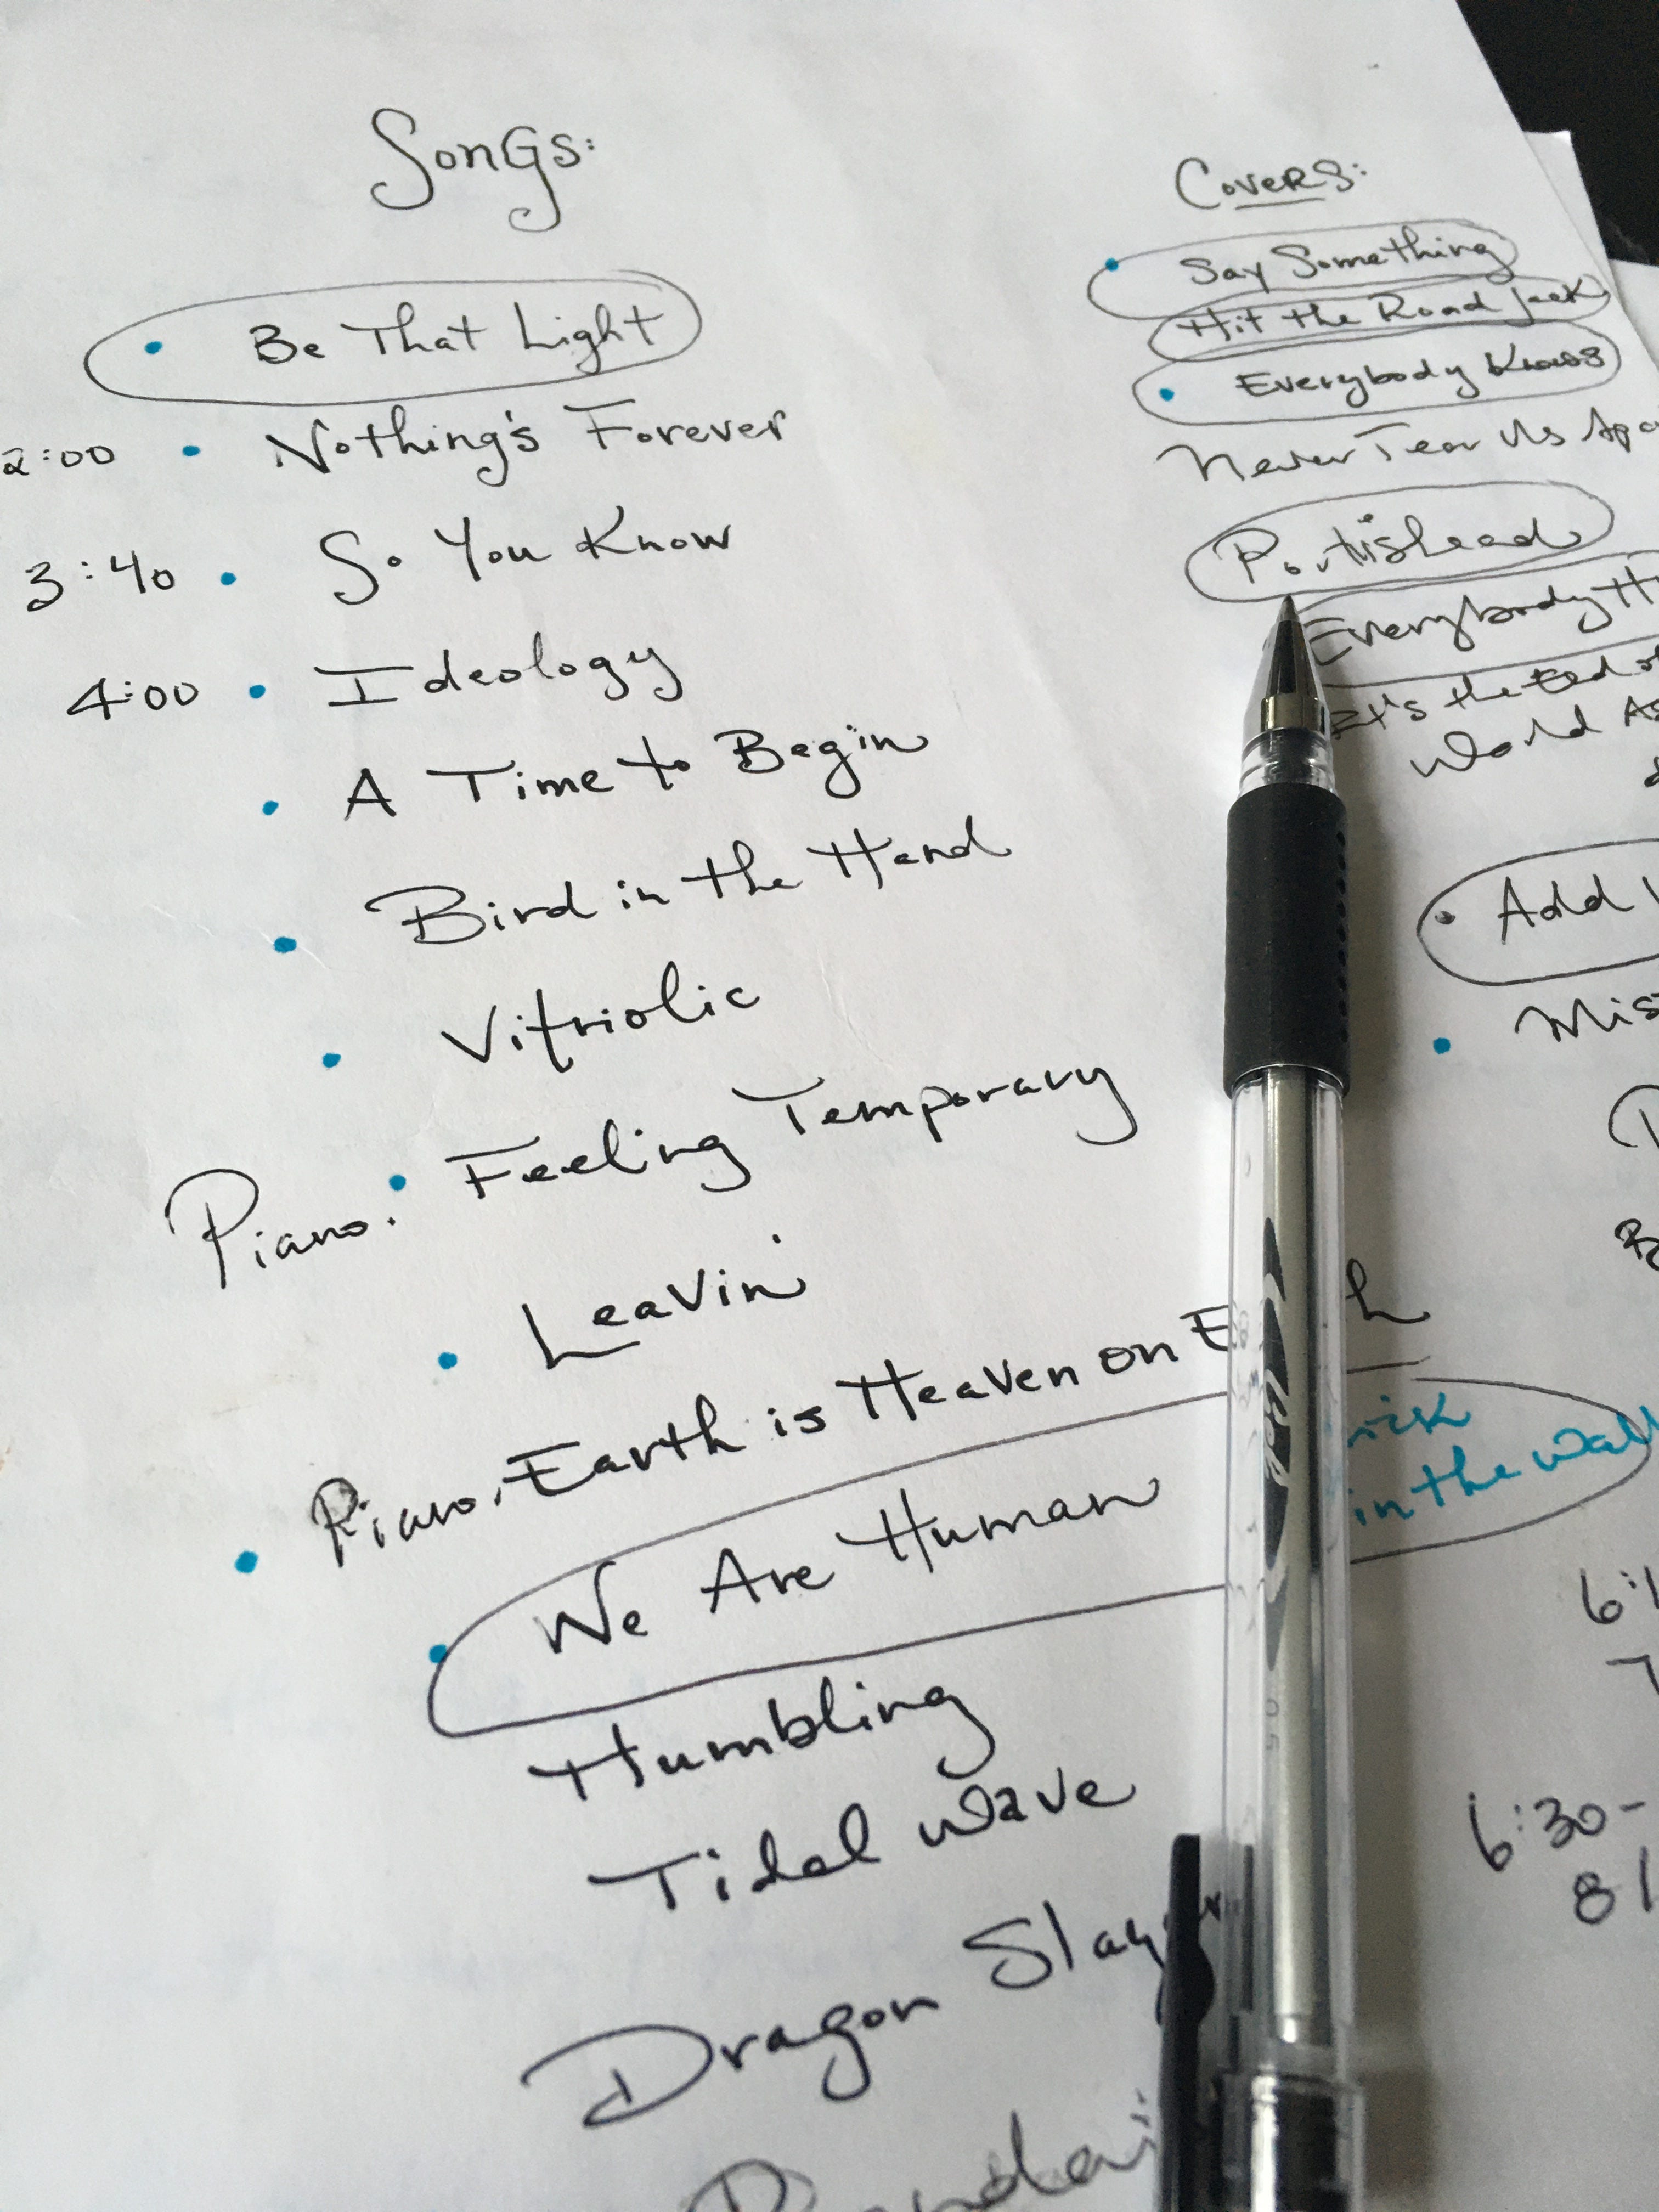 Songs:
Be That Light
2:00 Nothing's Forever
3:40 So You Know
4:00 Ideology
A Time to Begin
Bird in the Hand
Vitriolic
Piano: Feeling Temporary
Leavin
Piano. Earth is Heaven on
We Are Human
Humbling
Tidal Wave
Dragon
Covers:
Say Something
Hit the Road Jack
Everybody Knows
Never Tear Us
Portishead
Everybody
It's the End of
World
Add
in the wall
6:30-